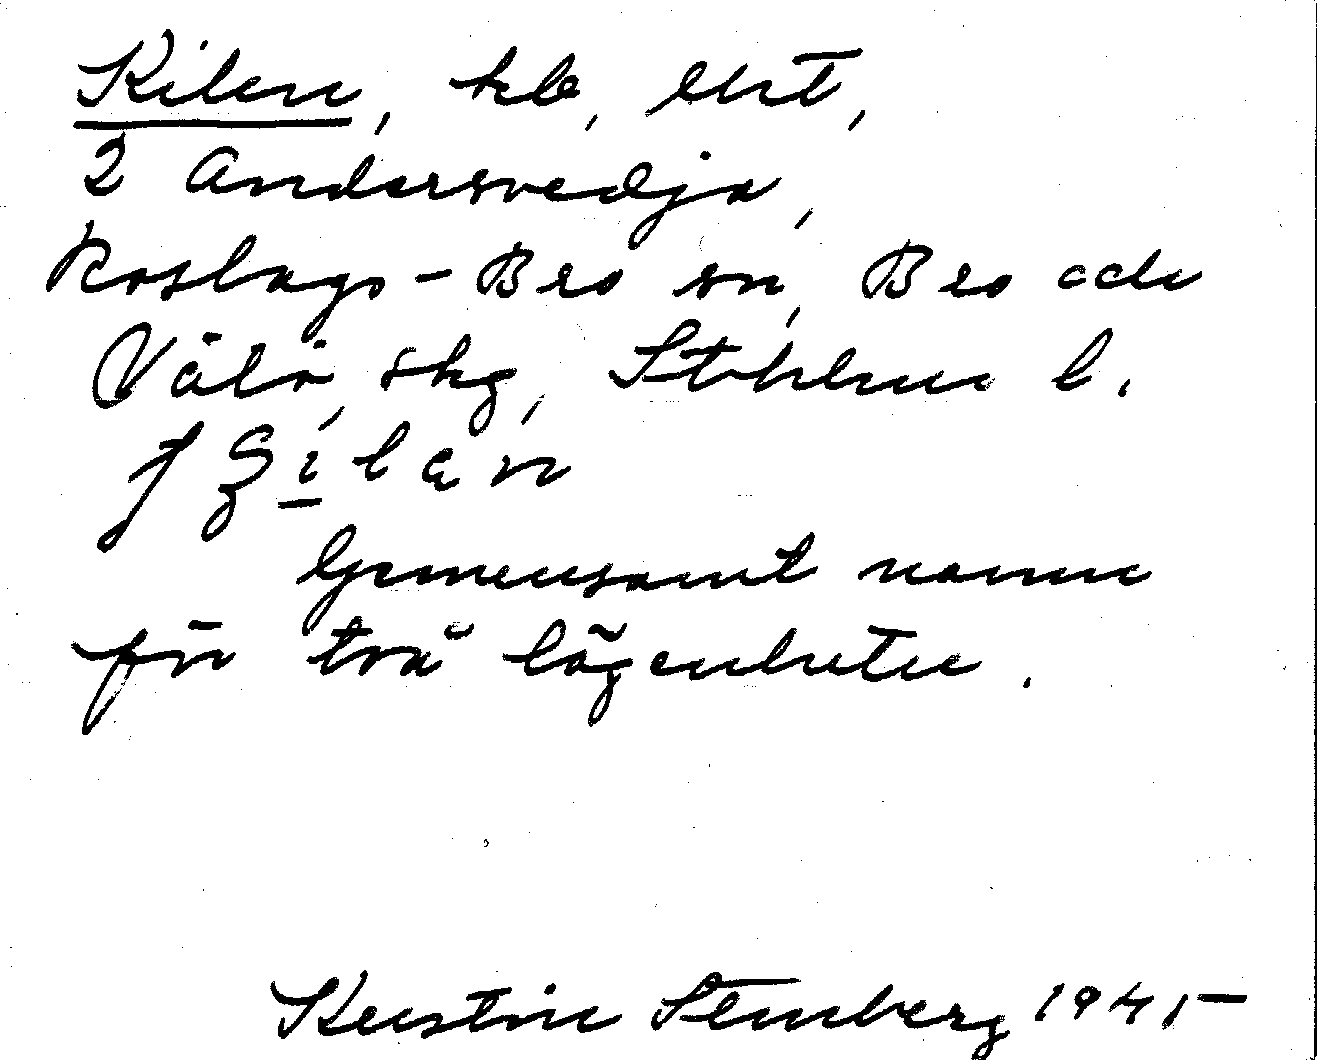 Kilen, kb, ent,
2 Andersvedja,
Roslags-Bro sn, Bro och
Vätö skg, Sthlms l.
Gemensamt namn
för två lägenheter.
Kerstin Stenberg 1945